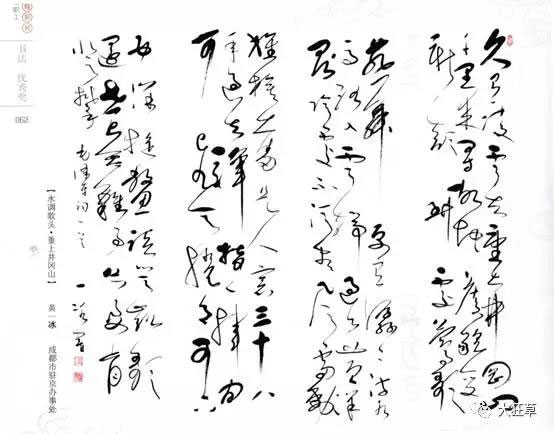 久有凌云志重上井冈山
千里来寻故地旧貌变
新颜到处莺歌
燕舞更有潺潺流水
高路入云端过了黄洋
界险处不须看风雷动
旌旗奋是人寰三十八
年过去弹指一挥间
可上九天揽月可下
五洋捉鳖谈笑凯歌
还世上无难事只要肯
登攀 毛泽东词一首 一冰书
【水调歌头·重上井冈山】 黄一冰 成都市驻京办事处
职工
书法 优秀奖
062
大狂草